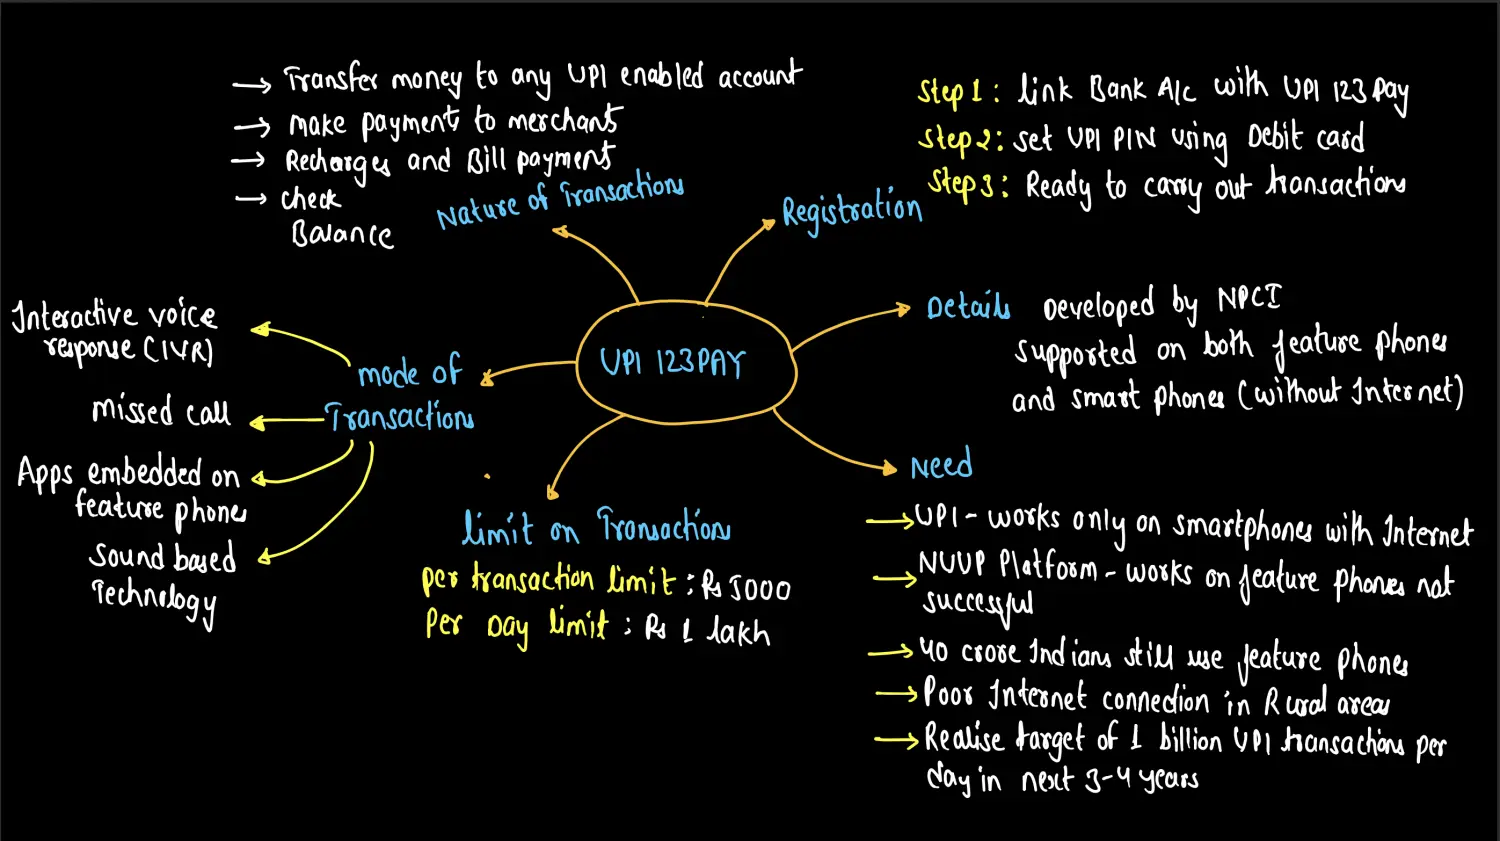 → Transfer money to any UPI enabled account
→ Make payments to merchants
→ Recharges and Bill payments
→ Check
Balance
Nature of Transactions
Step 1: link Bank A/c with UPI 123 Pay
Step 2: set UPI PIN using Debit card
Step 3: Ready to carry out transactions
Registration
UPI 123PAY
Details
Developed by NPCI
supported on both feature phones
and smart phones (without Internet)
Need
→ UPI - works only on smartphones with Internet
→ NUUP Platform - works on feature phones not
successful
→ 40 crore Indians still use feature phones
→ Poor Internet connection in Rural areas
→ Realise target of 1 billion UPI transactions per
day in next 3-4 years
limit on Transactions
per transaction limit : Rs 5000
Per Day limit : Rs 1 lakh
mode of
Transactions
Interactive voice
response (IVR)
missed call
Apps embedded on
feature phones
Sound based
Technology